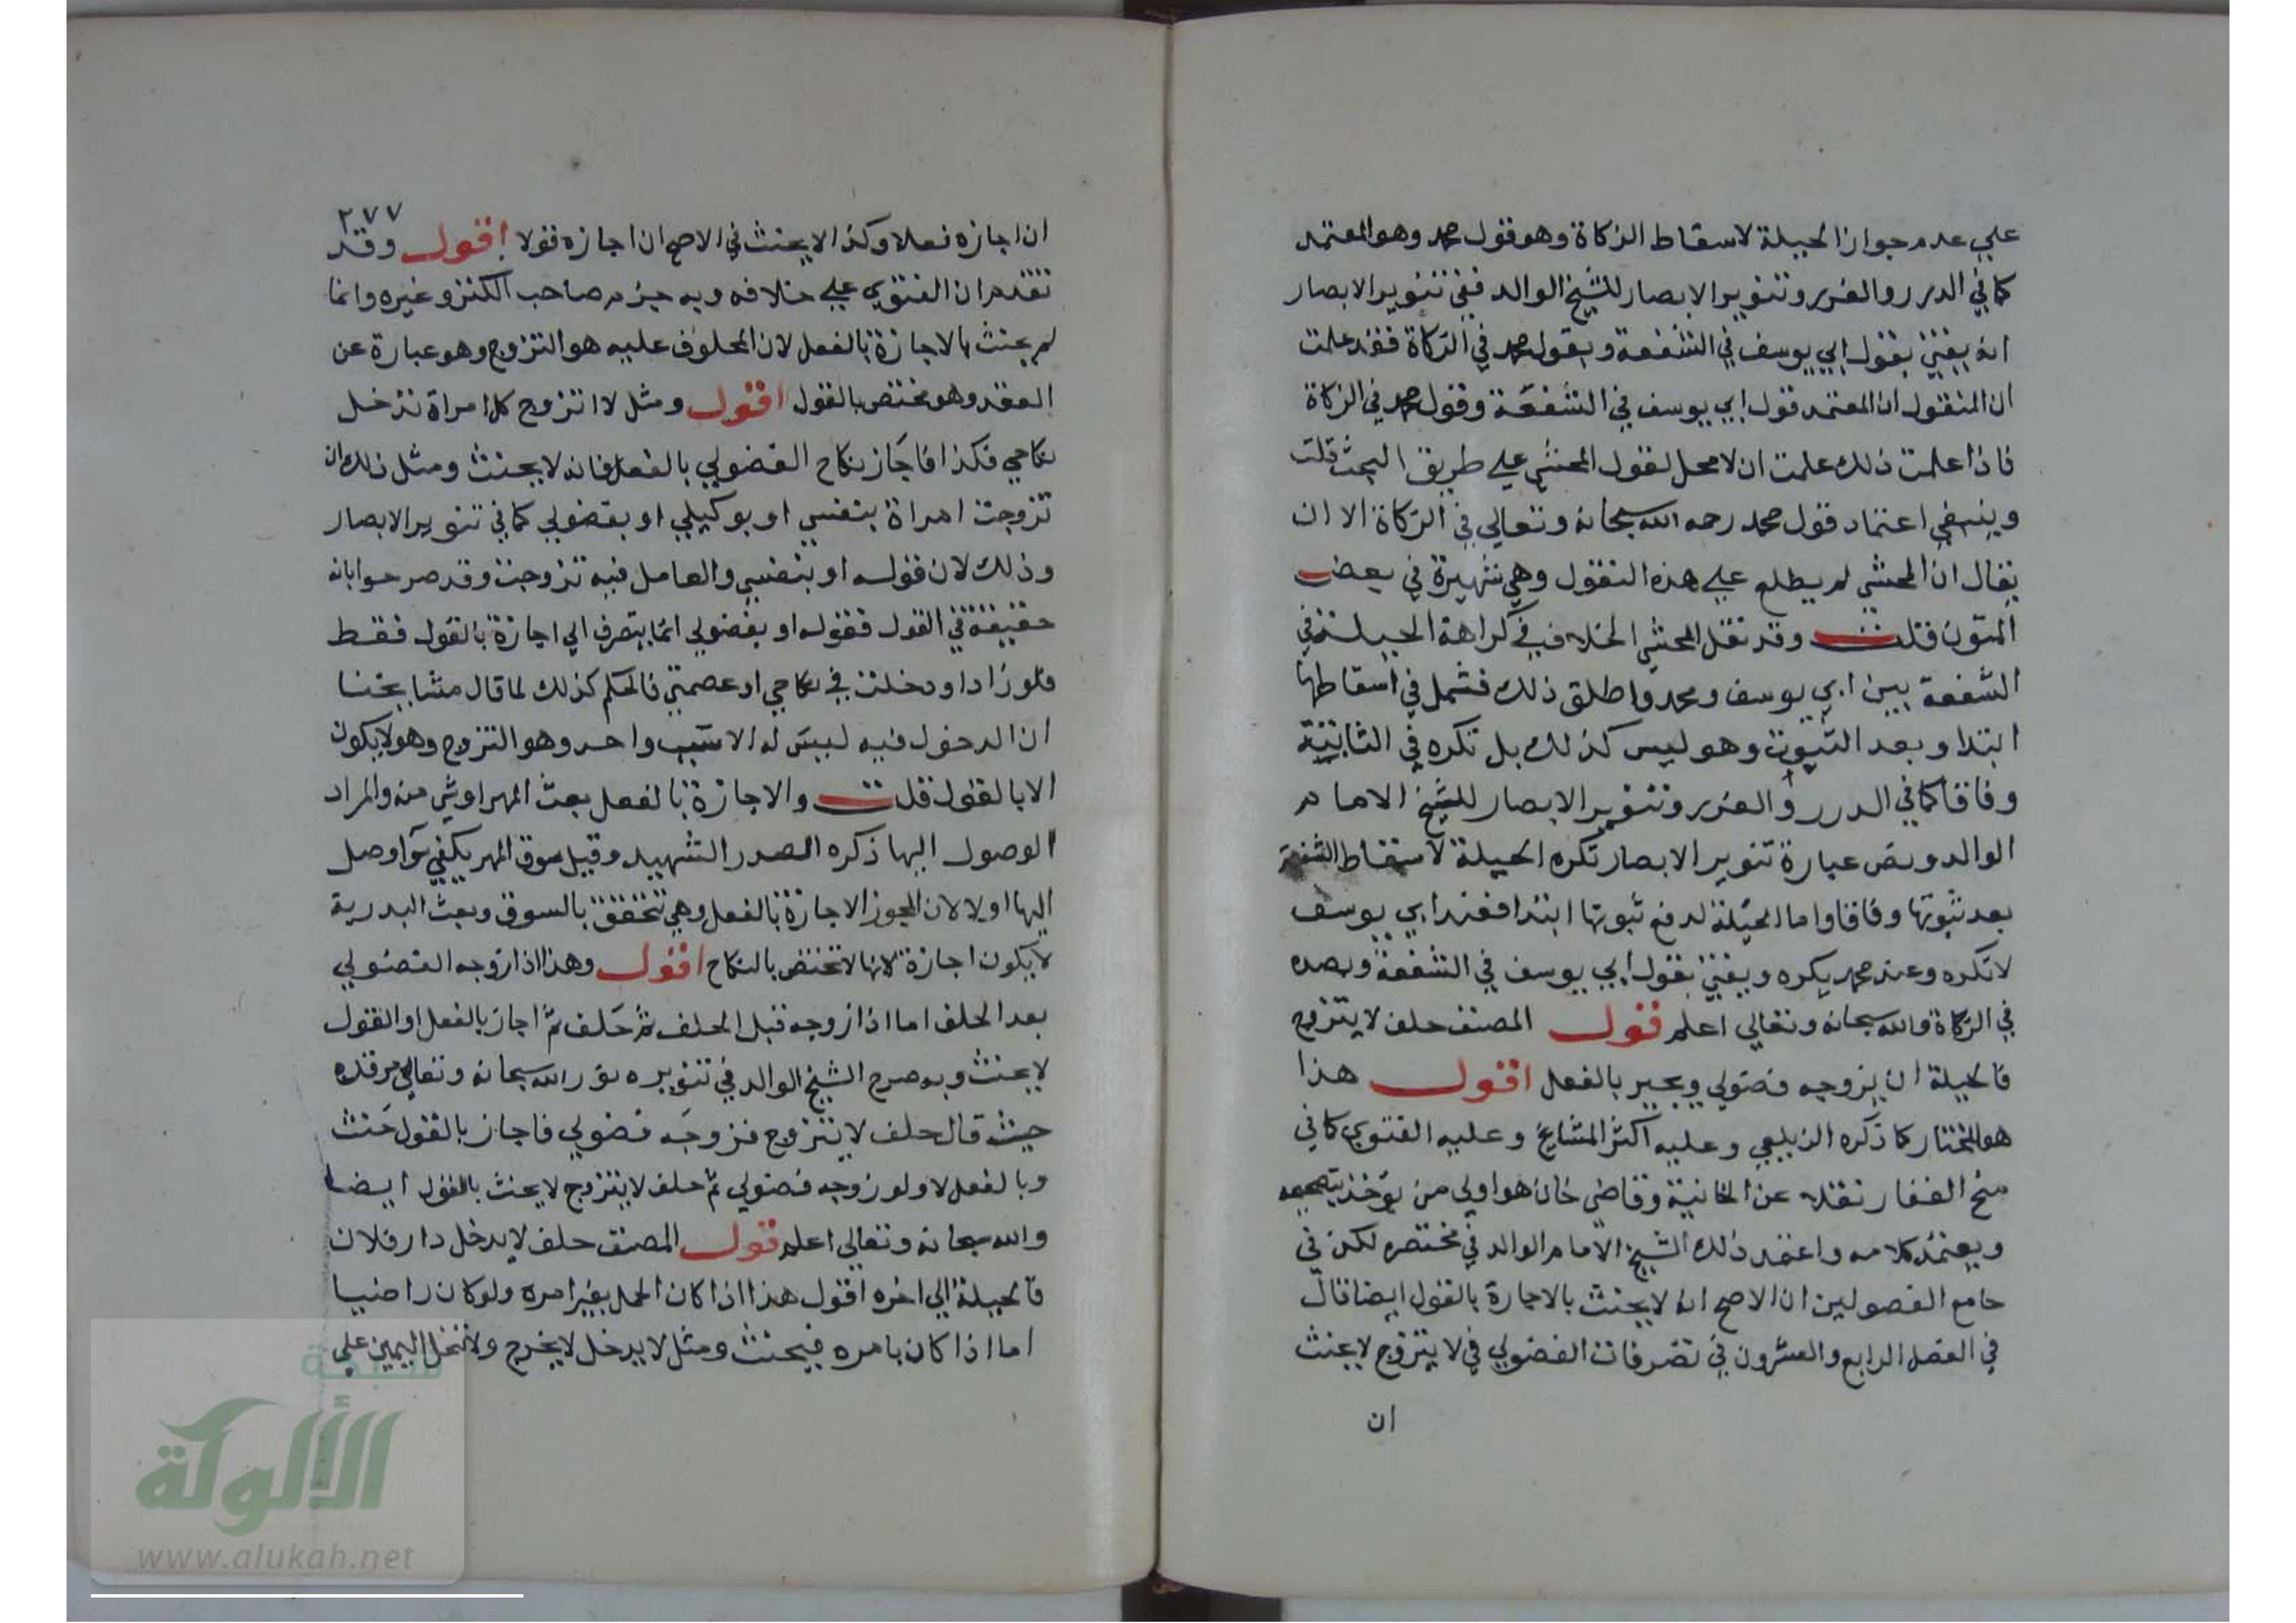 علي عدم جواز الحيلة لاسقاط الزكاة وهو قول محمد وهو المعتمد
كما في الدرر والغرر وتنوير الابصار للشيخ الوالد ففي تنوير الابصار
انه يفتي بقول ابي يوسف في الشفعة وبقول محمد في الزكاة فقد علمت
ان المنقول ان المعتمد قول ابي يوسف في الشفعة وقول محمد في الزكاة
فاذا علمت ذلك علمت ان لا محل لقول المحشي علي طريق البحث قلت
وينبغي اعتماد قول محمد رحمه الله سبحانه وتعالي في الزكاة الا ان
يقال ان المحشي لم يطلع علي هذه النقول وهي شهيرة في بعض
المتون قلت وقد نقل المحشي الخلاف في كراهة الحيلة في
الشفعة بين ابي يوسف ومحمد واطلق ذلك فشمل في اسقاطها
ابتدا وبعد الثبوت وهو ليس كذلك بل تكره في الثانية
وفاقا كما في الدرر والغرر وتنوير الابصار للشيخ الامام
الوالد ونص عبارة تنوير الابصار تكره الحيلة لاسقاط الشفعة
بعد ثبوتها وفاقا واما الحيلة لدفع ثبوتها ابتدا فعند ابي يوسف
لا تكره وعند محمد يكره ويفتي بقول ابي يوسف في الشفعة وبضده
في الزكاة والله سبحانه وتعالي اعلم قول المصنف حلف لا يتزوج
فالحيلة ان يزوجه فضولي ويجيز بالفعل اقول هذا
هو المختار كما ذكره الزيلعي وعليه اكثر المشايخ وعليه الفتوي كما في
منح الغفار نقله عن الخانية وقاضي خان هو اولي من يؤخذ بتصحيحه
ويعتمد كلامه واعتمد ذلك الشيخ الامام الوالد في مختصره لكن في
جامع الفصولين ان الاصح انه لا يحنث بالاجازة بالقول ايضا قال
في الفصل الرابع والعشرون في تصرفات الفضولي في لا يتزوج لا يحنث
ان
٢٧٧
ان اجازه فعلا وكذا لا يحنث في الاصح ان اجازه قولا اقول وقد
تقدم ان الفتوي علي خلافه وبه جزم صاحب الكنز وغيره وانما
لم يحنث بالاجازة بالفعل لان المحلوف عليه هو التزوج وهو عبارة عن
العقد وهو مختص بالقول اقول ومثل لا اتزوج كل امراة تدخل
نكاحي فكذا فاجاز نكاح الفضولي بالفعل فانه لا يحنث ومثل ذلك ان
تزوجت امراة بنفسي او بوكيلي او بفضولي كما في تنوير الابصار
وذلك لان قوله او بنفسي والعامل فيه تزوجت وقد صرحوا بانه
حقيقة في القول فقوله او بفضولي انما يتصرف الي اجازة بالقول فقط
فلو زاد او دخلت في نكاحي او عصمتي فالحكم كذلك لما قال مشايخنا
ان الدخول فيه ليس له الا سبب واحد وهو التزوج وهو لا يكون
الا بالقول قلت والاجازة بالفعل بعث المهر او شي منه والمراد
الوصول اليها ذكره الصدر الشهيد وقيل سوق المهر يكفي سوآ وصل
اليها او لا لان المجوز الاجازة بالفعل وهي تتحقق بالسوق وبعث الهدية
لا يكون اجازة لانها لا تختص بالنكاح اقول وهذا اذا زوجه الفضولي
بعد الحلف اما اذا زوجه قبل الحلف ثم حلف ثم اجاز بالفعل او القول
لا يحنث وبه صرح الشيخ الوالد في تنويره نور الله سبحانه وتعالي مرقده
حيث قال حلف لا يتزوج فزوجه فضولي فاجاز بالقول حنث
وبالفعل لا ولو زوجه فضولي ثم حلف لا يتزوج لا يحنث بالقول ايضا
والله سبحانه وتعالي اعلم قول المصنف حلف لا يدخل دار فلان
فالحيلة الي اخره اقول هذا اذا كان الحمل بغير امره ولو كان راضيا
اما اذا كان بامره فيحنث ومثل لا يدخل لا يخرج ولا تنحل اليمين علي
شبكة
الألوكة
www.alukah.net